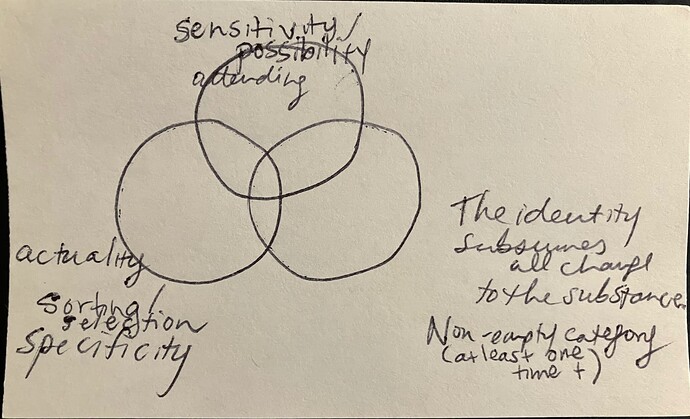 sensitivity/
possibility
attending
actuality
sorting/
selection
specificity
The identity
subsumes
all change
to the substance
Non-empty category
(at least one
time t)